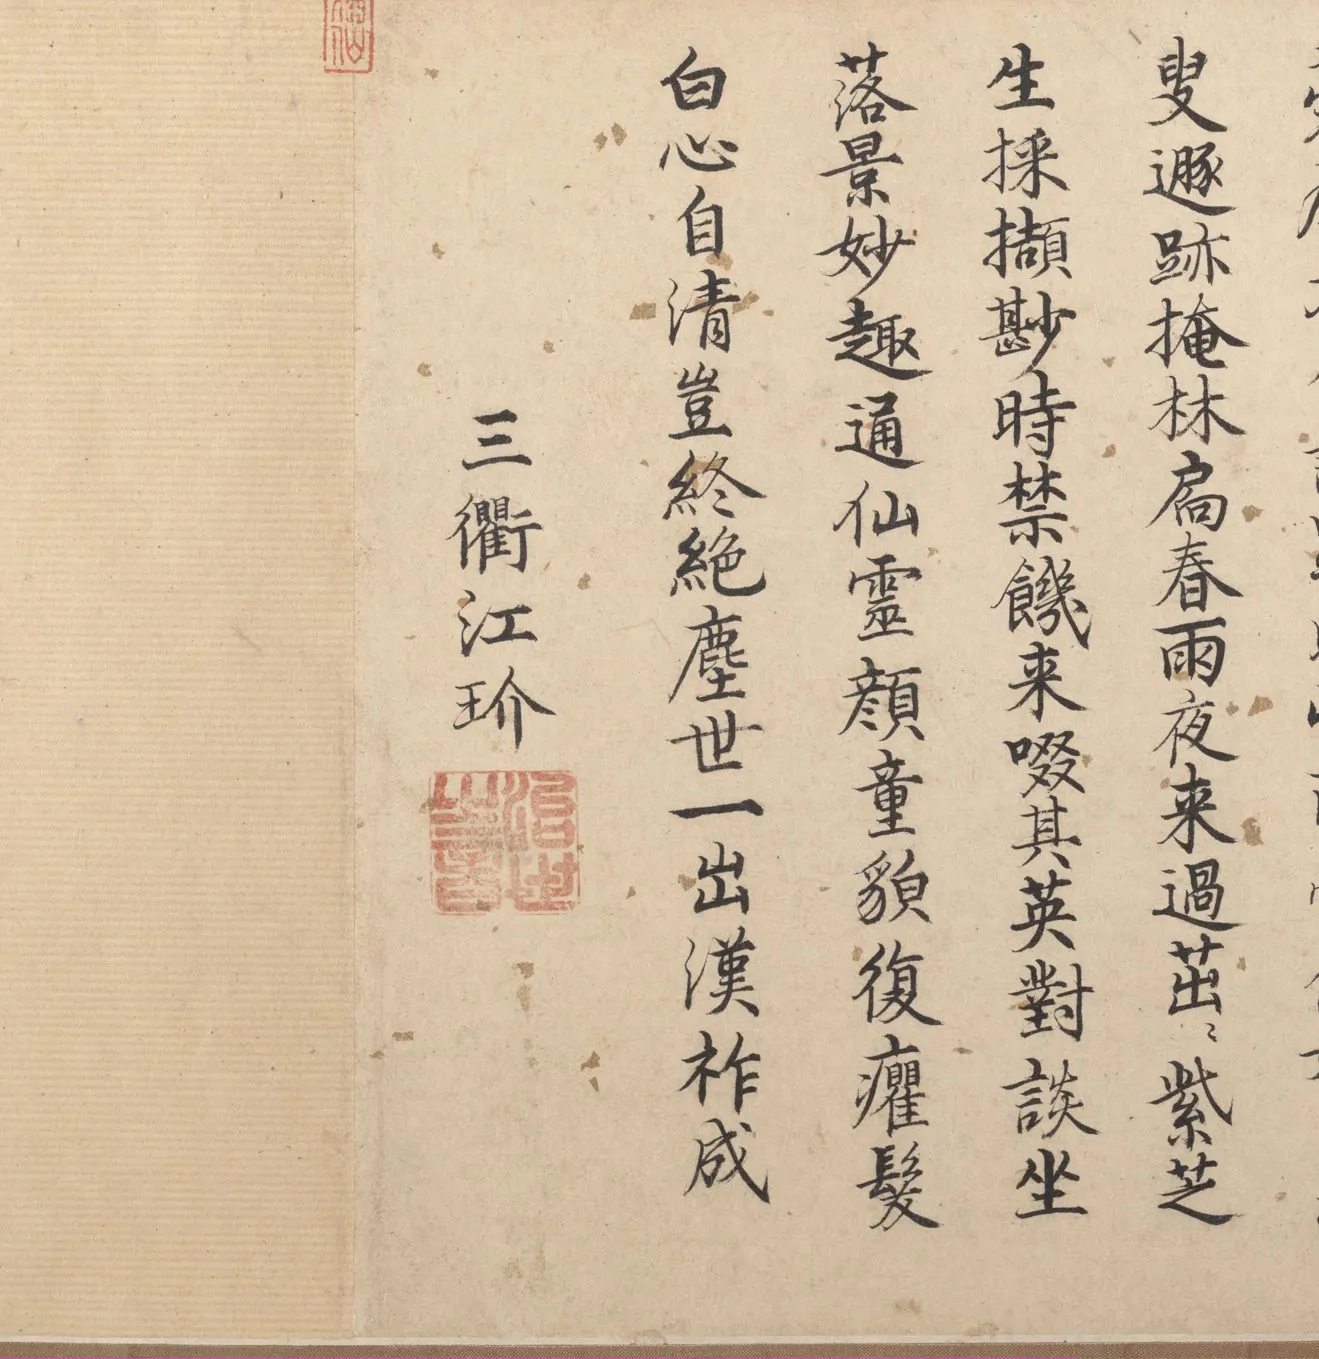 叟遯跡掩林扃春雨夜来過茁〻紫芝
生採擷尠時禁饑来啜其英對談坐
落景妙趣通仙靈顔童貌復癯髮
白心自清豈終絶塵世一出漢祚成
三衢江玠